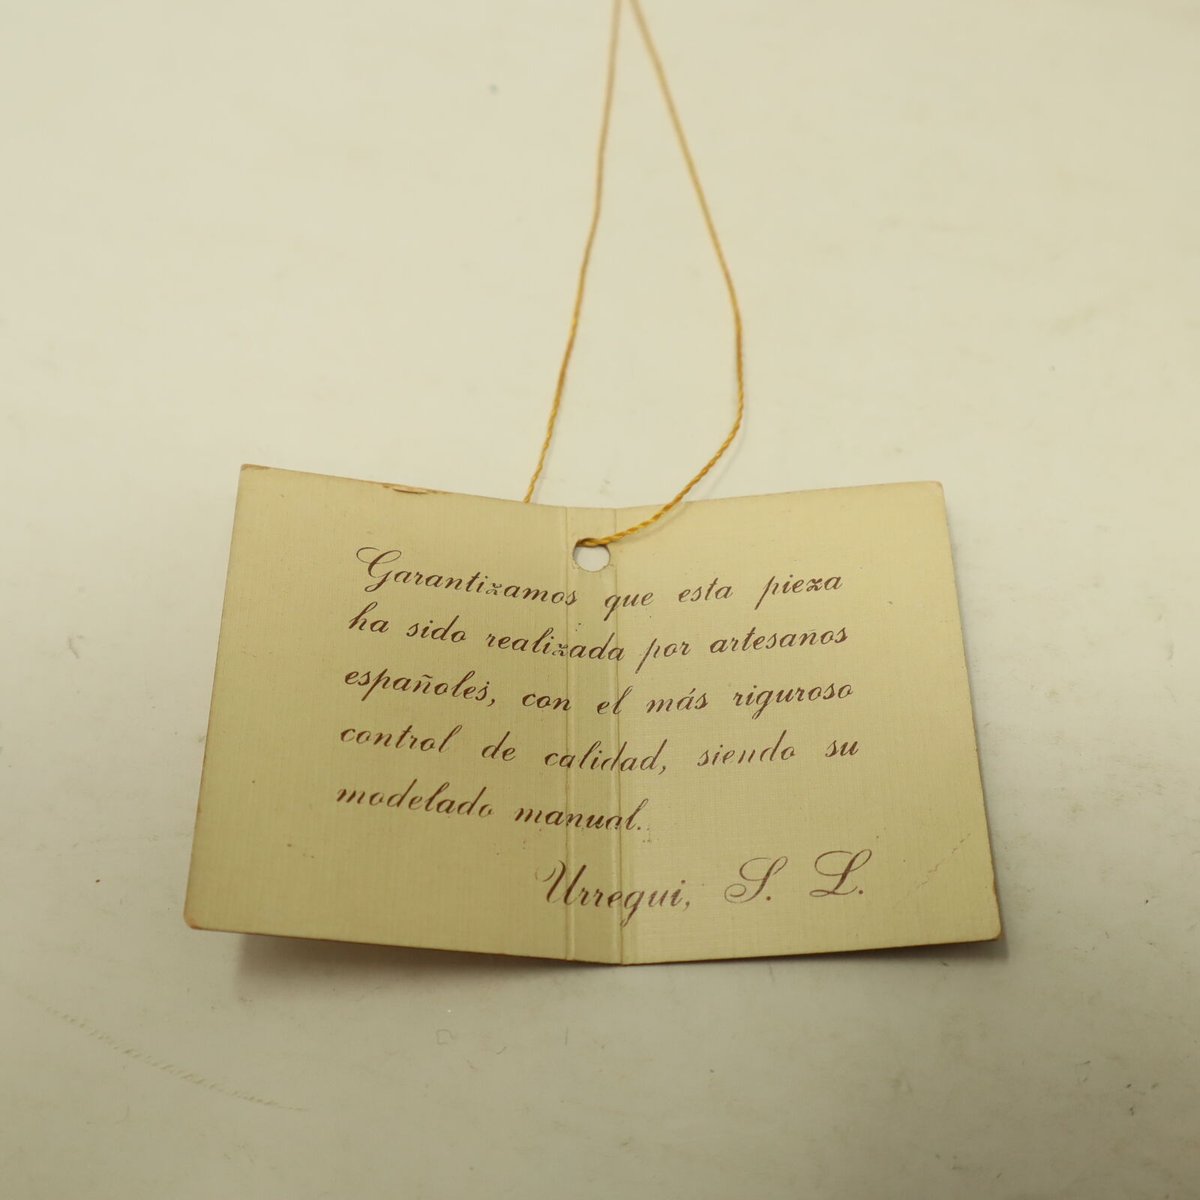 Garantizamos que esta pieza
ha sido realizada por artesanos
españoles, con el más riguroso
control de calidad, siendo su
modelado manual.
Urregui, S. L.